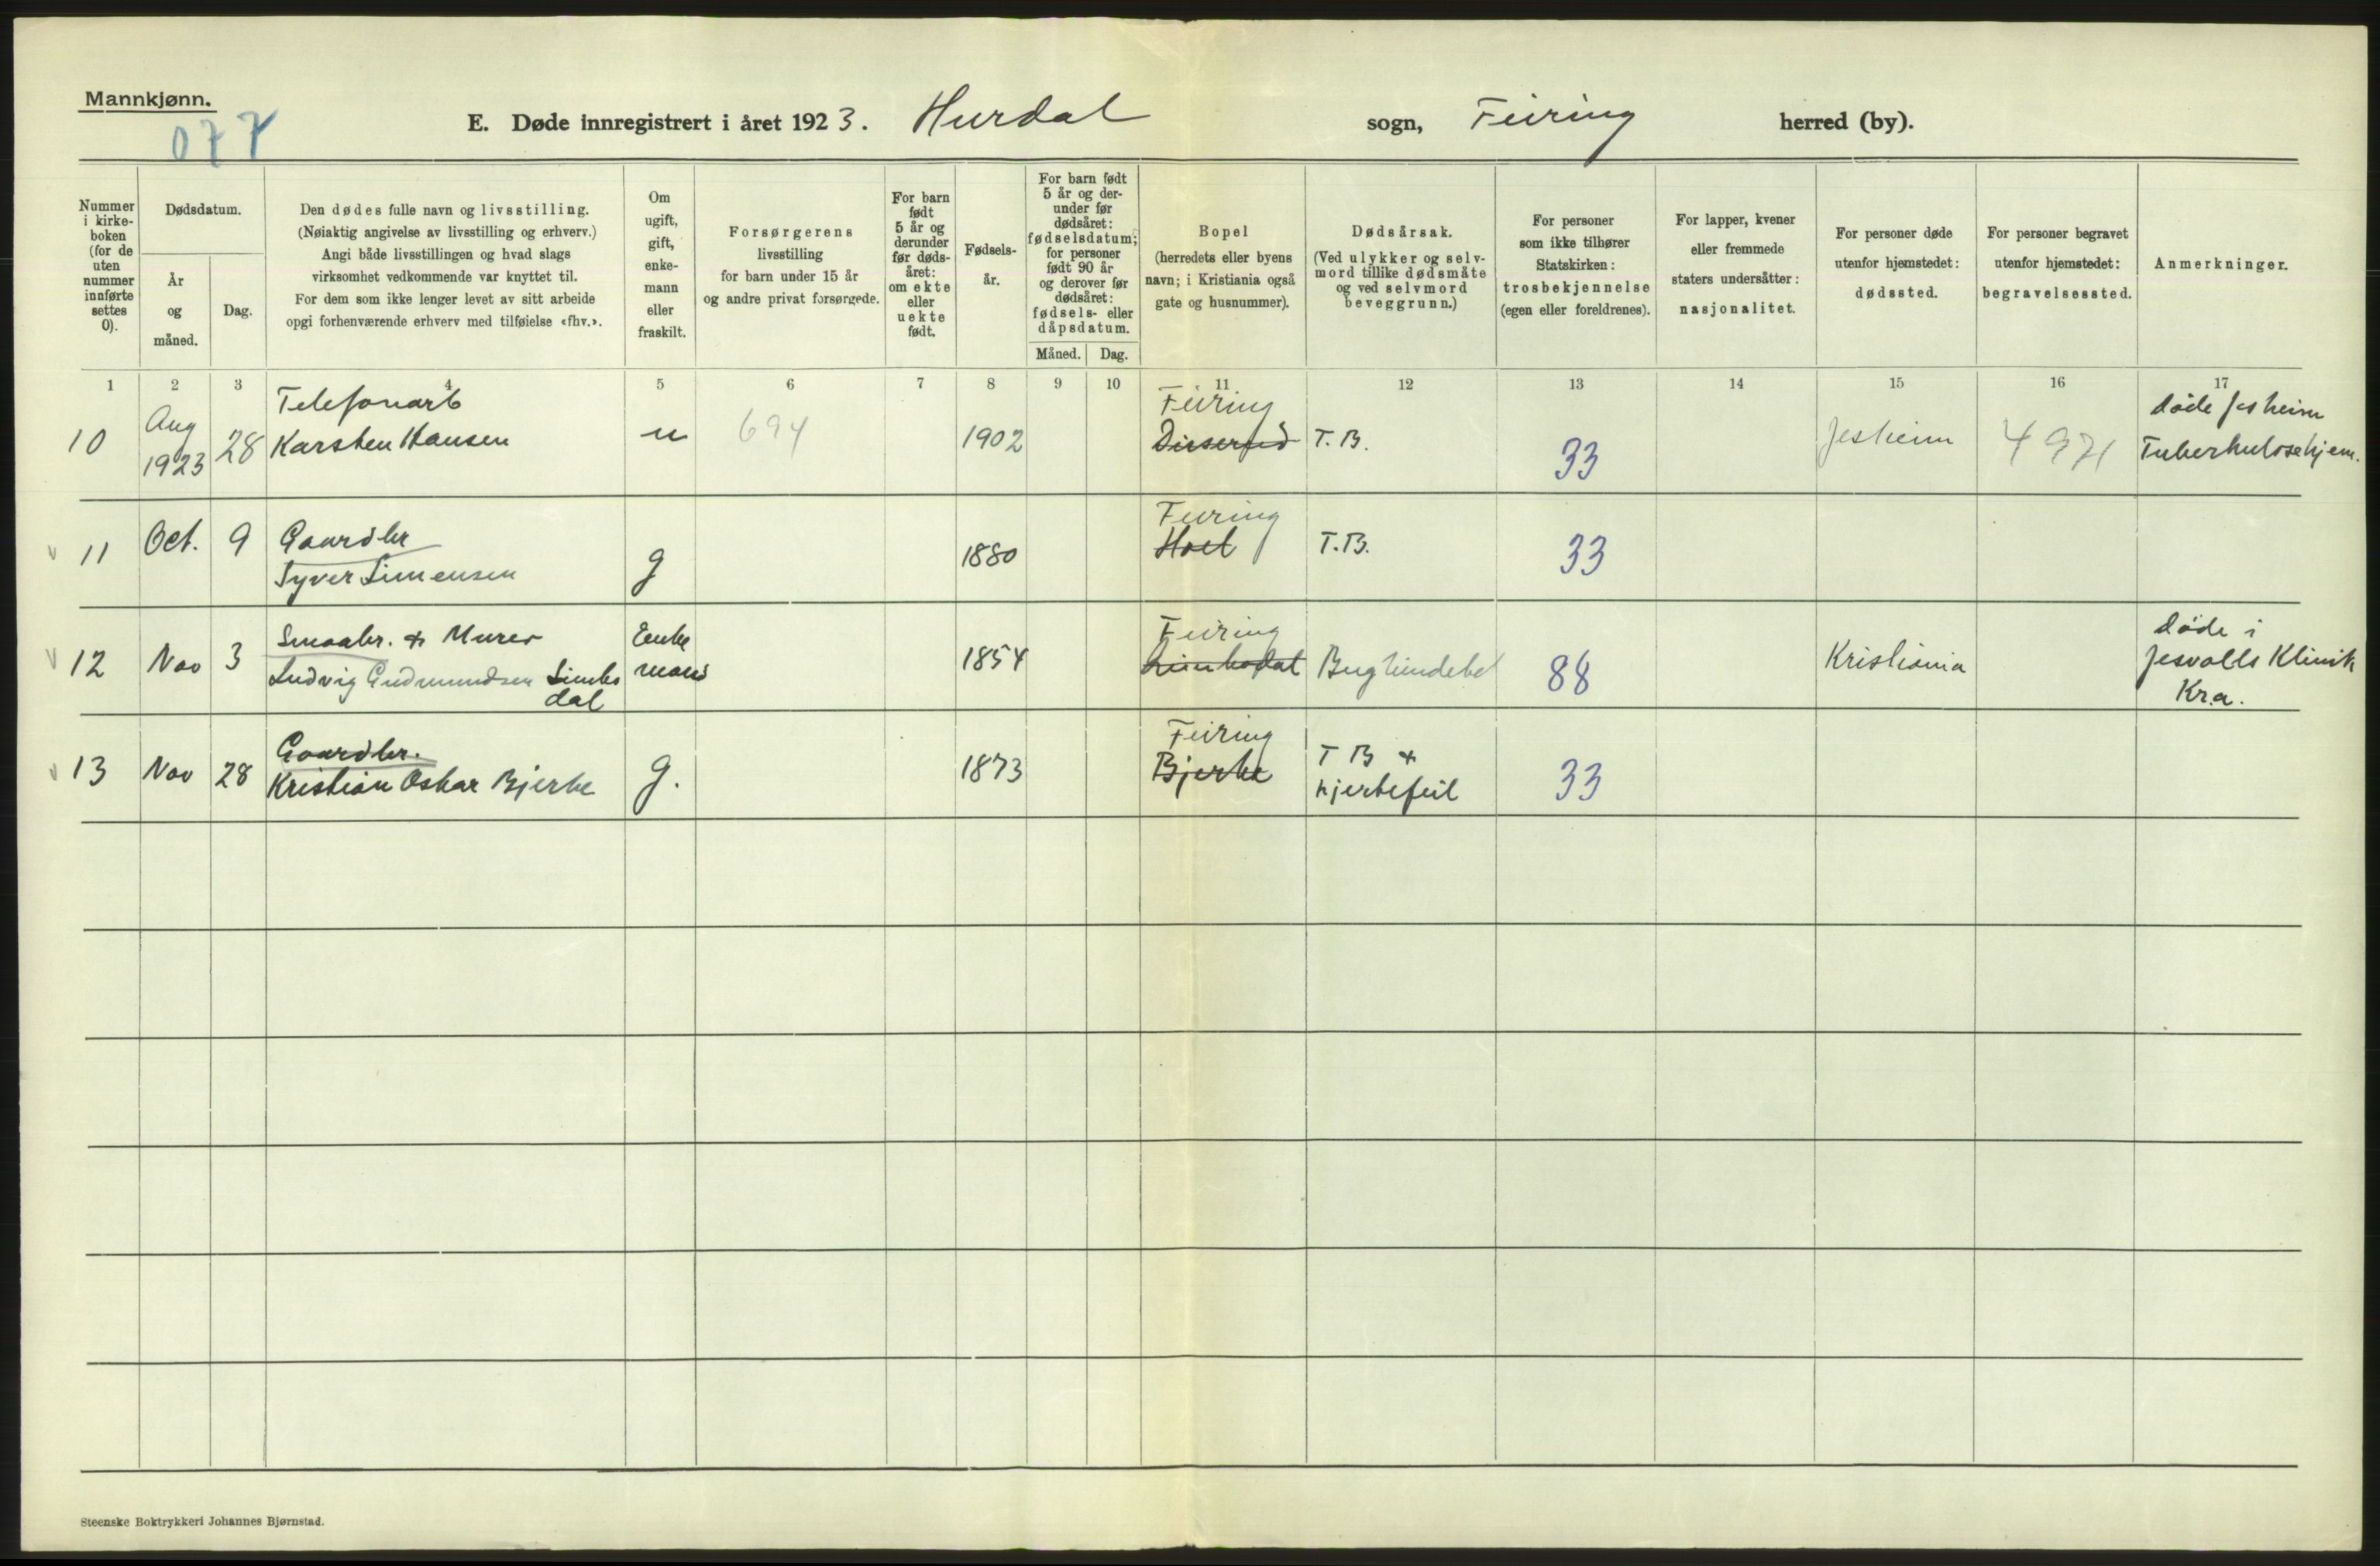 Mannkjønn.
077
E. Døde innregistrert i året 1923. Hurdal sogn, Feiring herred (by).
Nummer i kirkeboken (for de uten nummer innførte settes 0).
Dødsdatum.
År og måned.
Dag.
Den dødes fulle navn og livsstilling.
(Nøiaktig angivelse av livsstilling og erhverv.)
Angi både livsstillingen og hvad slags
virksomhet vedkommende var knyttet til.
For dem som ikke lenger levet av sitt arbeide
opgi forhenværende erhverv med tilføielse «fhv.».
Om ugift, gift, enkemann eller fraskilt.
Forsørgerens
livsstilling
for barn under 15 år
og andre privat forsørgede.
For barn født 5 år og derunder før dødsåret: om ekte eller uekte født.
Fødselsår.
For barn født 5 år og derunder før dødsåret: fødselsdatum; for personer født 90 år og derover før dødsåret: fødsels- eller dåpsdatum.
Måned. Dag.
Bopel
(herredets eller byens
navn; i Kristiania også
gate og husnummer).
Dødsårsak.
(Ved ulykker og selvmord tillike dødsmåte og ved selvmord beveggrunn.)
For personer
som ikke tilhører
Statskirken:
trosbekjennelse
(egen eller foreldrenes).
For lapper, kvener
eller fremmede
staters undersåtter:
nasjonalitet.
For personer døde
utenfor hjemstedet:
dødssted.
For personer begravet
utenfor hjemstedet:
begravelsessted.
Anmerkninger.
1 2 3 4 5 6 7 8 9 10 11 12 13 14 15 16 17
10 Aug 1923 28 Telefonarb Karsten Hansen u 694 1902 Feiring T.B. 33 Jesheim 4971 døde Jesheim Tuberkulosehjem.
11 Oct. 9 Gaardbr Syver Simensen g 1880 Feiring Hoel T.B. 33
12 Nov 3 Smaabr. & Murer Ludvig Gudmundsen Limbodal Enkemand 1854 Feiring Limbodal Bughindebet 88 Kristiania døde i Jesvolls Klinik Kra.
13 Nov 28 Gaardbr. Kristian Oskar Bjerke g. 1873 Feiring Bjerke T B & hjertefeil 33
Steenske Boktrykkeri Johannes Bjørnstad.